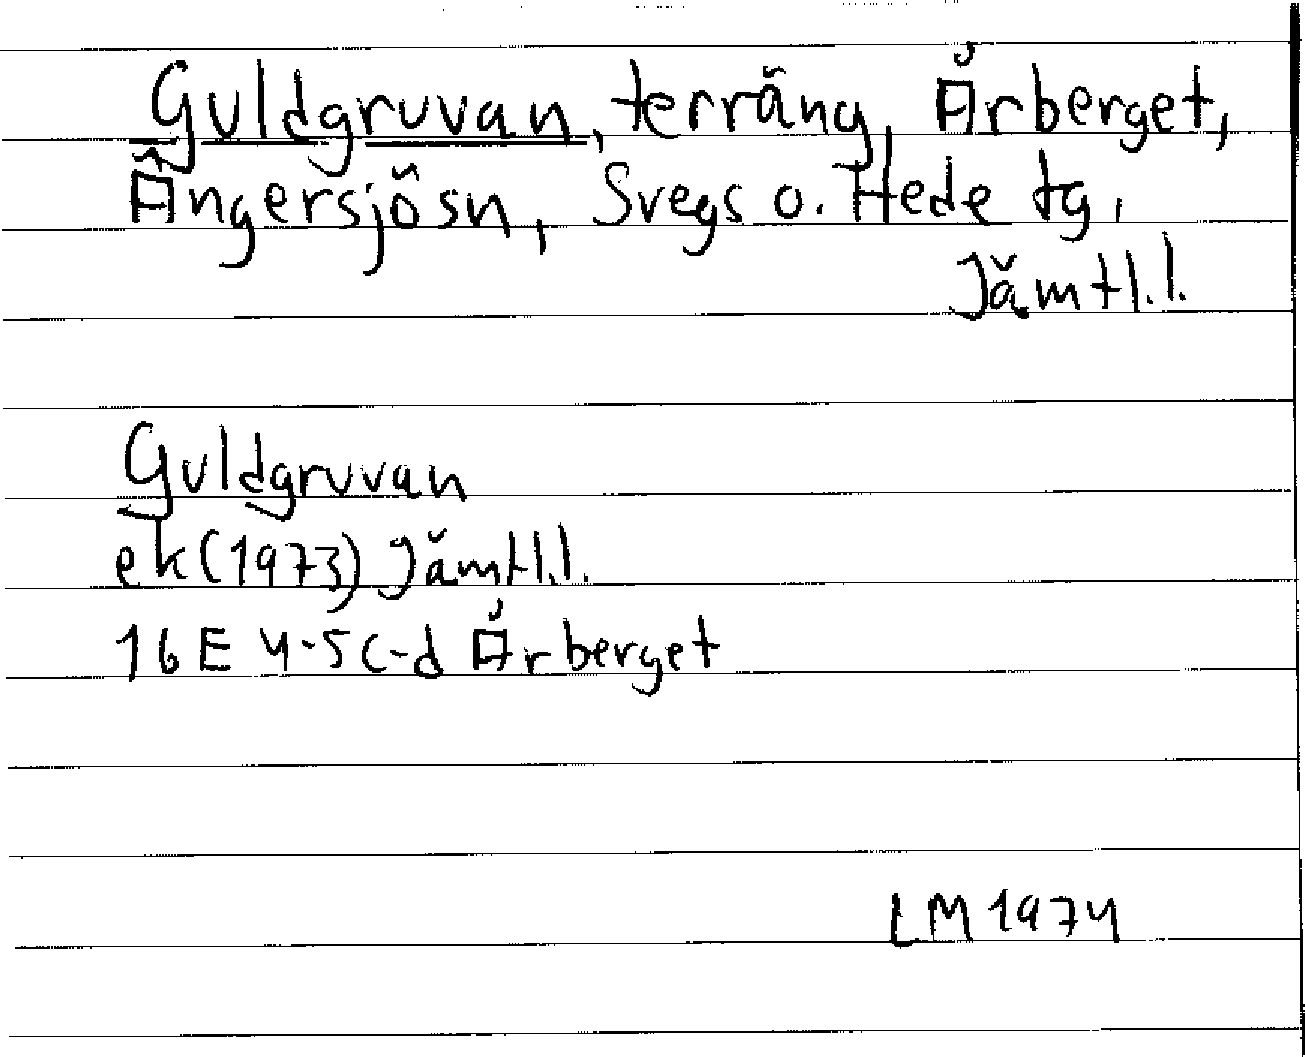 Guldgruvan, terräng, Årberget,
Ängersjösn, Svegs o. Hede tg,
Jämtl.l.
Guldgruvan
ek (1973) Jämtl.l.
16E 4-5c-d Årberget
LM 1974